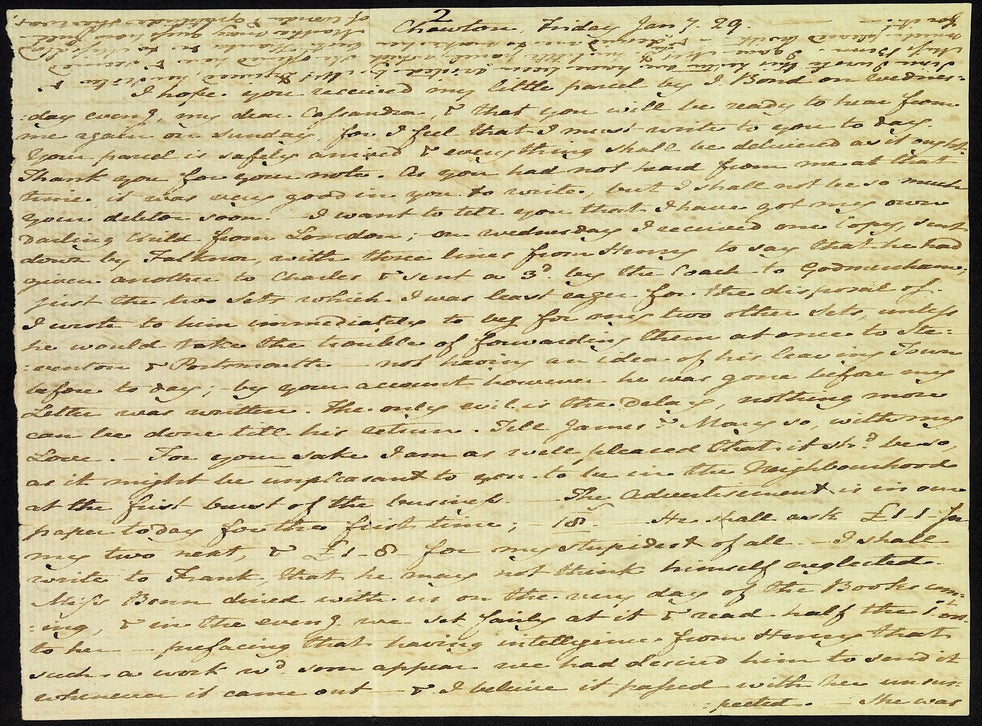 2
Chawton, Friday Jany 29.
I hope you received my little parcel by J. Bond on Wednes:
:day eveng, my dear Cassandra, & that you will be ready to hear from
me again on Sunday, for I feel that I must write to you to day.
Your parcel is safely arrived & everything shall be delivered as it ought.
Thank you for your note. As you had not heard from me at that
time it was very good in you to write, but I shall not be so much
your debtor soon. — I want to tell you that I have got my own
darling Child from London; — on Wednesday I received one Copy, sent
down by Falknor, with three lines from Henry to say that he had
given another to Charles & sent a 3d. by the Coach to Godmersham;
just the two Sets which I was least eager for the disposal of.
I wrote to him immediately to beg for my two other Sets, unless
he would take the trouble of forwarding them at once to Ste:
:venton & Portsmouth — not having an idea of his leaving Town
before to day; — by your account however he was gone before my
Letter was written. The only evil is the delay, nothing more
can be done till his return. Tell James & Mary so, with my
Love. — For your sake I am as well pleased that it shd be so,
as it might be unpleasant to you to be in the Neighbourhood
at the first burst of the business. — The Advertisement is in our
paper to day for the first time; — 18s — He shall ask £1-1- for
my two next, & £1-8- for my stupidest of all. — I shall
write to Frank, that he may not think himself neglected.
Miss Benn dined with us on the very day of the Books com:
:ing, & in the eveng we set fairly at it & read half the 1st vol.
to her — prefacing that having intelligence from Henry that
such a work wd soon appear we had desired him to send it
whenever it came out — & I beleive it passed with her unsus:
:pected. — She was